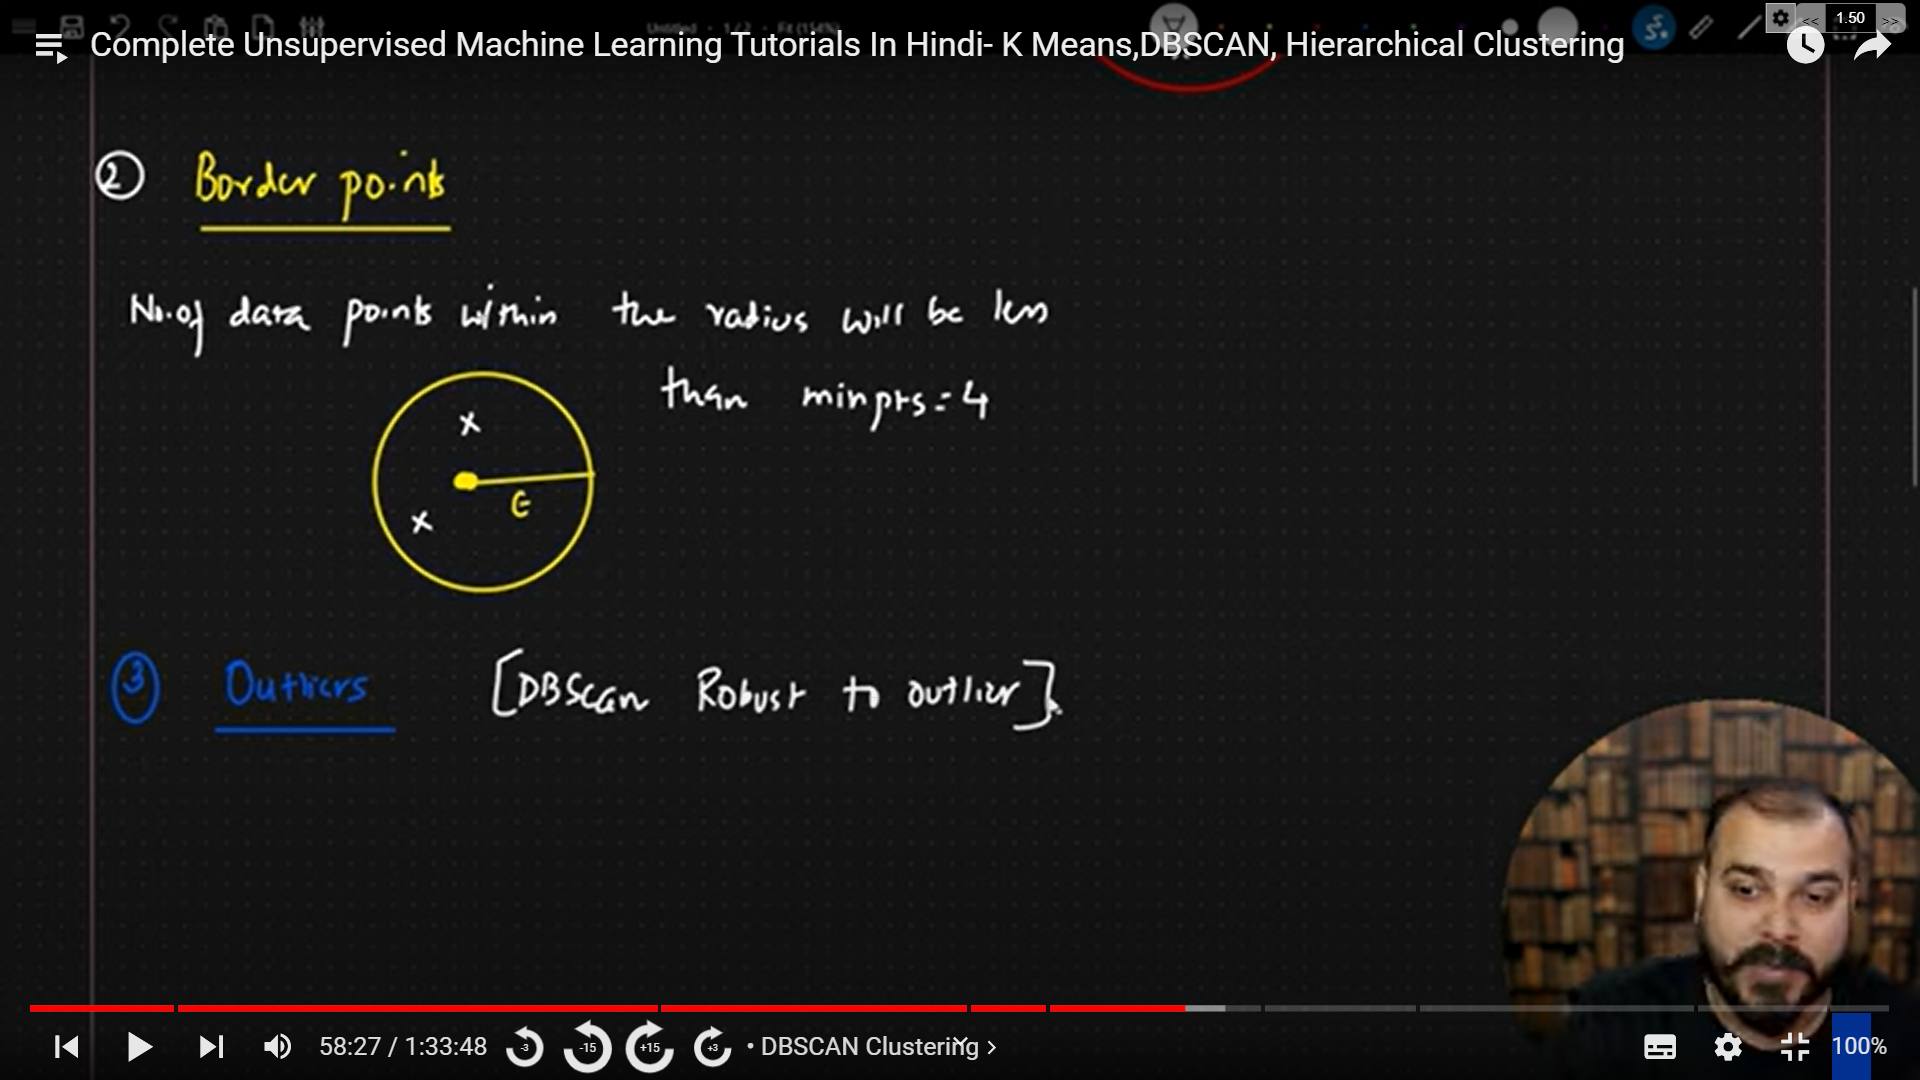 1.50
Complete Unsupervised Machine Learning Tutorials In Hindi- K Means,DBSCAN, Hierarchical Clustering
2 Border points
No. of data points within the radius will be less
than minpts = 4
x
ϵ
x
3 Outliers [DBScan Robust to outlier]
58:27 / 1:33:48 -3 -15 +15 +3 • DBSCAN Clustering 100%